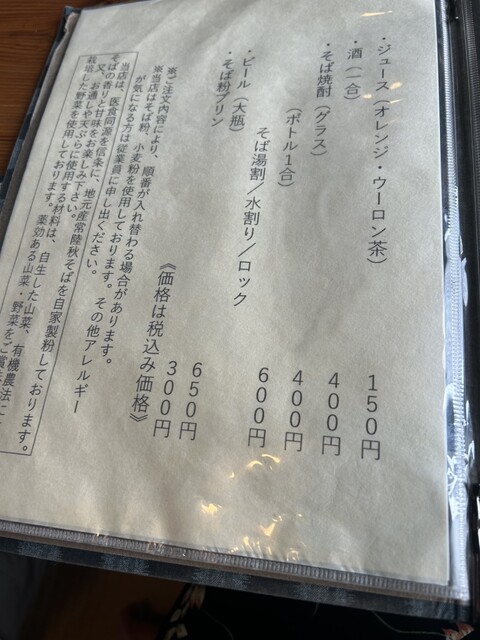 ・ジュース（オレンジ・ウーロン茶） 150円
・酒（一合） 400円
・そば焼酎（グラス） 400円
（ボトル1合） 600円
そば湯割／水割り／ロック
・ビール（大瓶） 650円
・そば粉プリン 300円
《価格は税込み価格》
※ご注文内容により、順番が入れ替わる場合があります。
※当店はそば粉、小麦粉を使用しております。その他アレルギー
が気になる方は従業員に申し出ください。
当店は、医食同源を信条に、地元産常陸秋そばを自家製粉しております。
そばの香りと甘味をお楽しみ下さい。
又、お通しや天ぷらに使用する材料は、自生した山菜、有機農法に
栽培した野菜を使用しております。薬効ある山菜・野菜をご賞